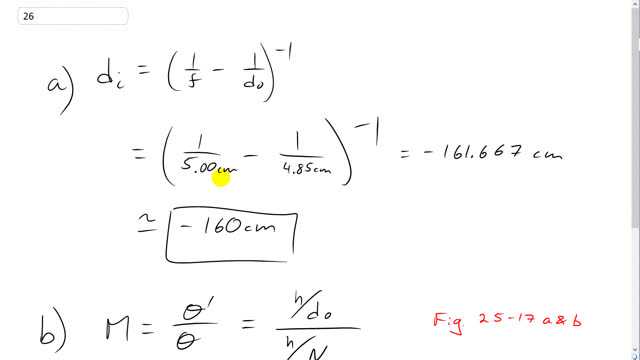 26
a) di = (1/f - 1/do)^-1
= (1/5.00cm - 1/4.85cm)^-1 = -161.667 cm
≃ -160cm
b) M = θ'/θ = h/do / h/N
Fig. 25-17 a & b